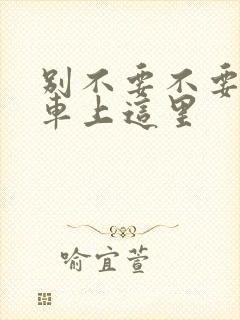 别不要不要
車上這里
喻宜萱